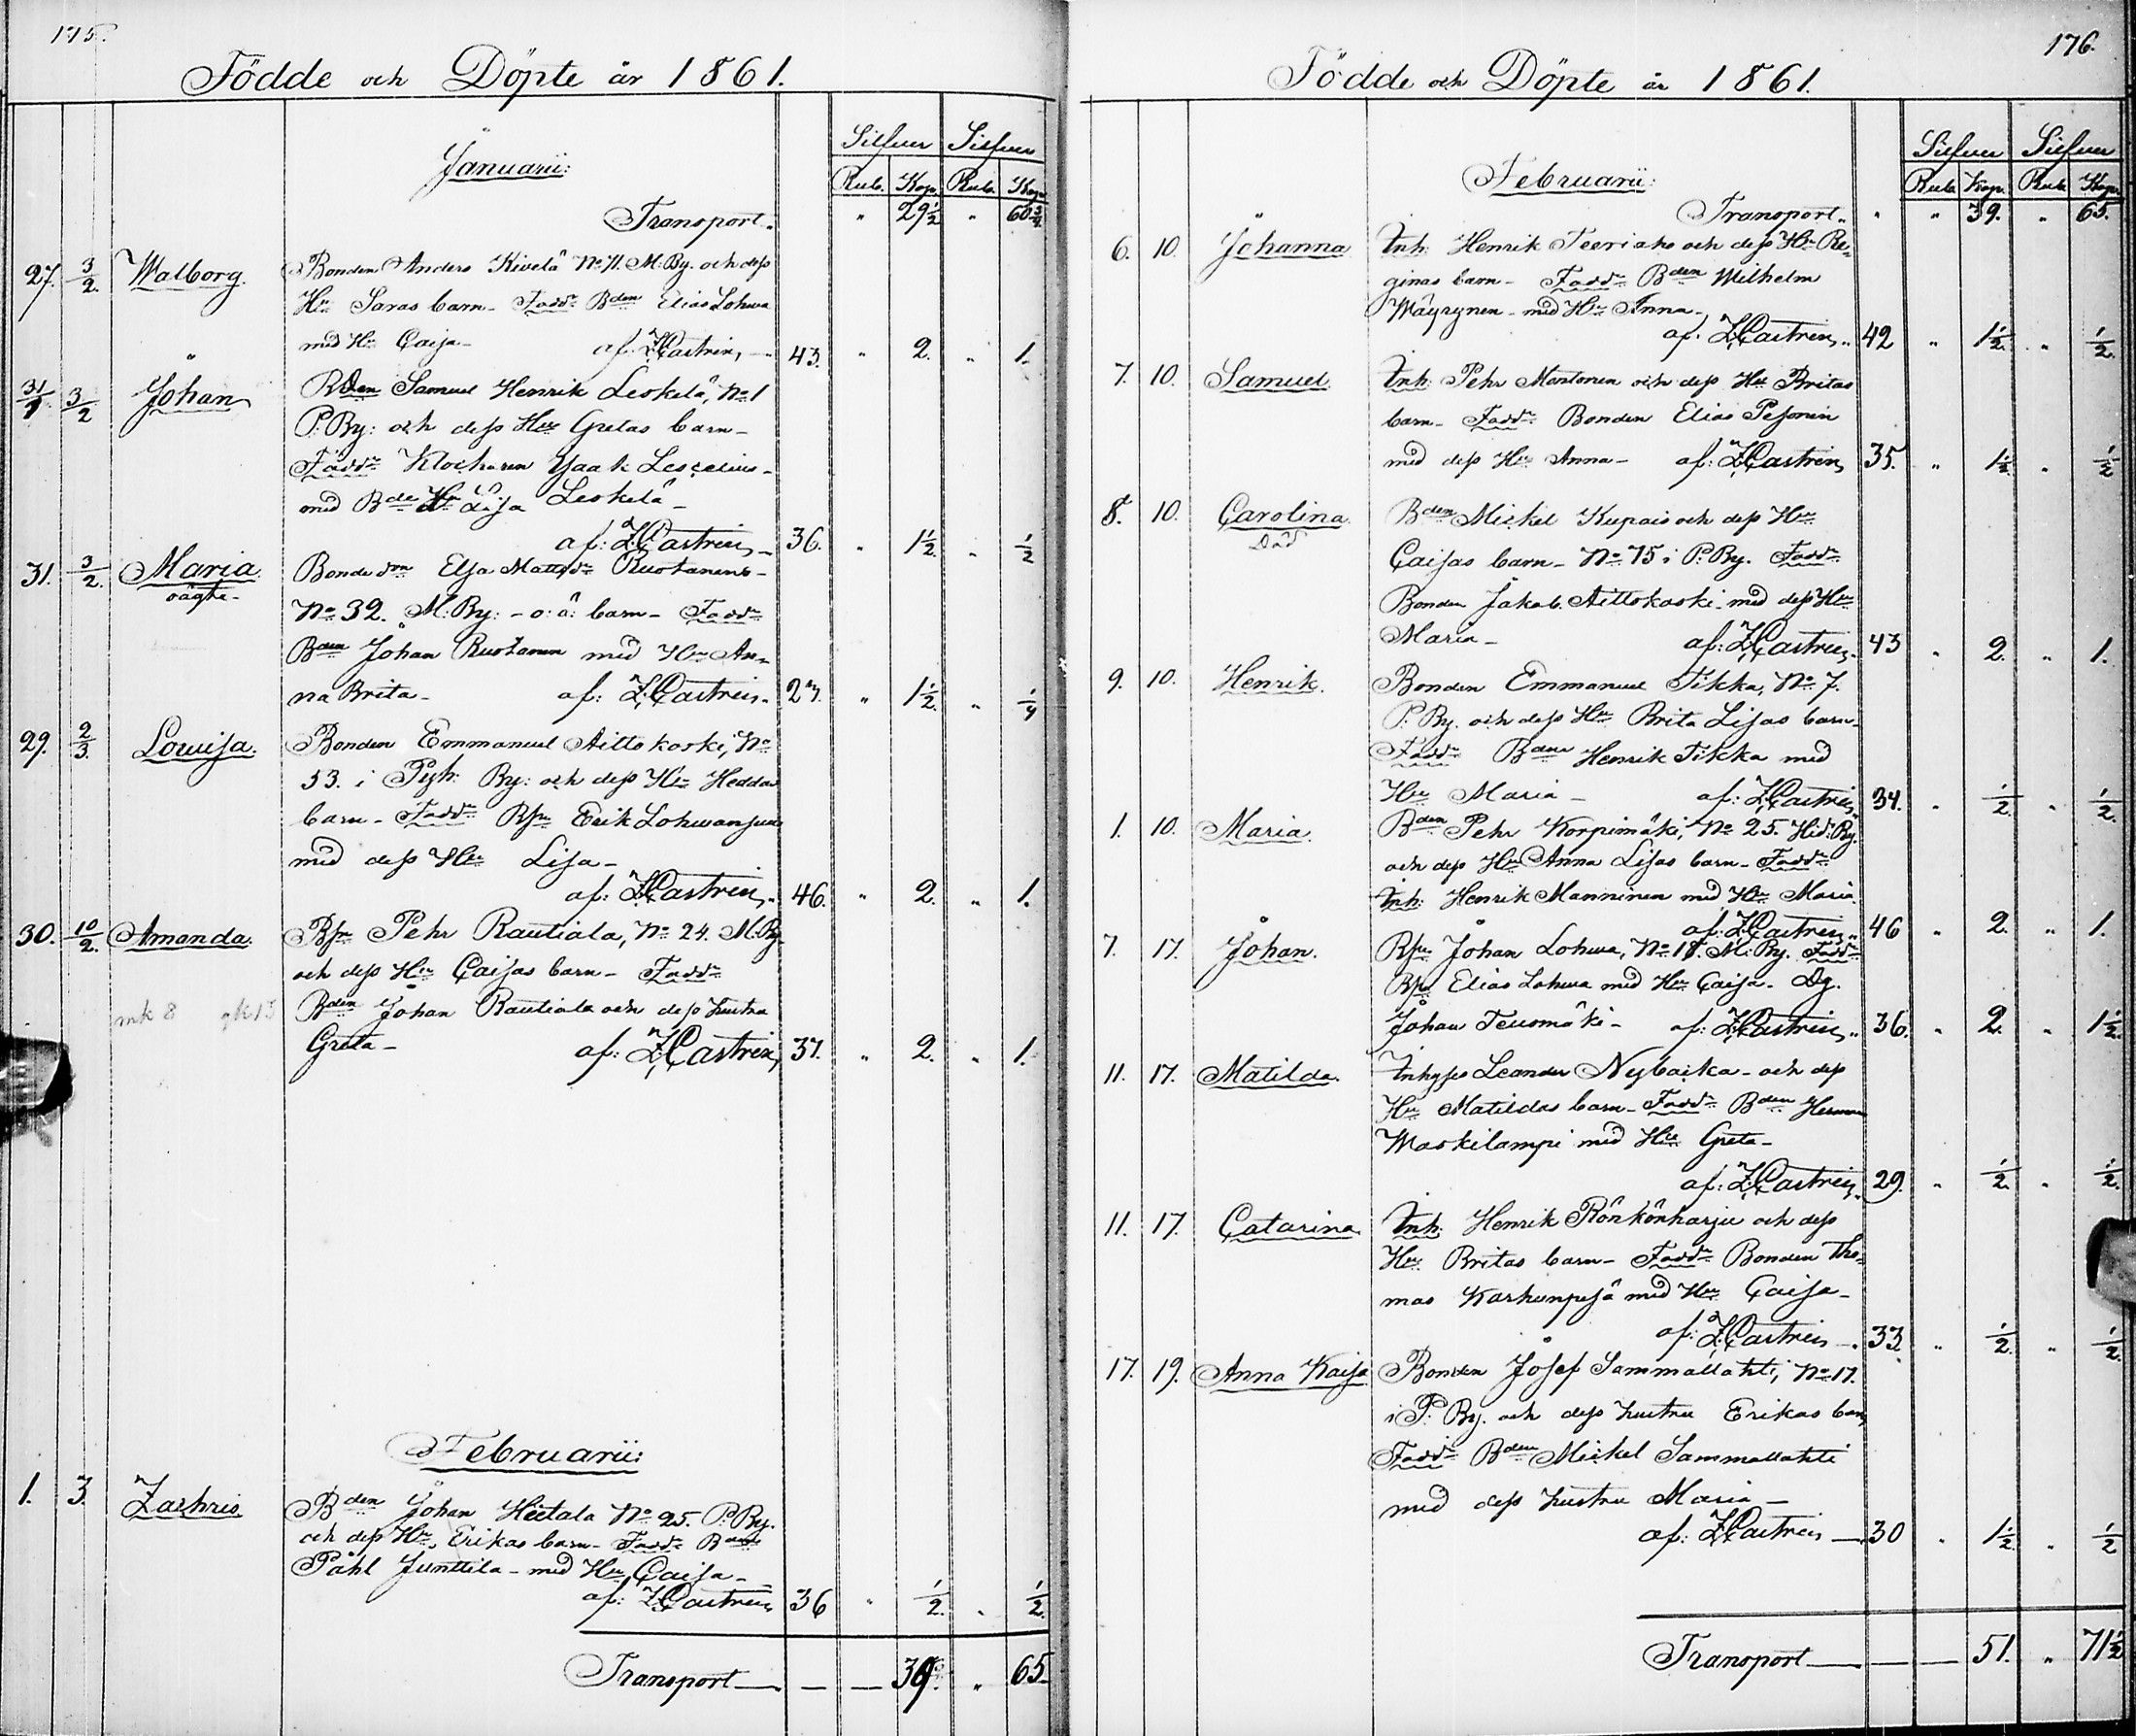 175.
Födde och Döpte år 1861.
Silfver Silfver
Januarii:
Rub. Kop. Rub. Kop.
Transport „ 29½ „ 60¾
27. 3/2. Walborg. Bonden Anders Kivelä No 71. M. By. och dess
Hu Saras barn - Fadd: Bden Elias Lohwa
med Hu Caisa -
af: Z Castrén, 43. „ 2. „ 1.
31/1 3/2 Johan Bden Samuel Henrik Leskelä, No 1
P. By: och dess Hu Gretas barn -
Fadd: Klockaren Isaak Lescelius -
med Bde Hu Lisa Leskelä -
af: Z Castrén 36. „ 1½ „ ½
31. 3/2. Maria Bondedn Elsa Mattsdr Ruotanens -
oägta -
No 32. M. By: - o: ä: barn - Fadd:
Bden Johan Ruotanen med Hu An-
na Brita - af: Z Castrén. 27. „ 1½ „ ¼
29. 2/3. Lowisa. Bonden Emmanuel Aittokoski, No
53. i Pyh: By: och dess Hu Heddas
barn - Fadd: Erik Lohwansuu
med dess Hu Lisa -
af: Z Castrén, 46. „ 2. „ 1.
30. 10/2. Amanda. Pehr Rautiola, No 24. M. By.
och dess Hu Caisas barn - Fadd:
mk 8 qk 13 Bden Johan Rautiola och dess hustru
Greta - af: Z Castrén, 37. „ 2. „ 1.
Februarii:
1. 3. Zachris Bden Johan Hietala No 25. P. By.
och dess Hu Erikas barn - Fadd: Bden
Påhl Junttila - med Hu Caisa -
af: Z Castrén 36 „ ½. „ ½.
Transport — — 39. „ 65
176.
Födde och Döpte år 1861.
Silfver Silfver
Februarii:
Rub. Kop. Rub. Kop.
Transport „ „ 39. „ 65.
6. 10. Johanna Inh: Henrik Teeriaho och dess Hu Re-
ginas barn - Fadd: Bden Wilhelm
Wäyrynen - med Hu Anna -
af: Z Castrén, 42 „ 1½. „ ½.
7. 10. Samuel. Inh: Pehr Montonen och dess Hu Britas
barn - Fadd: Bonden Elias Pesonen
med dess Hu Anna - af: Z Castrén 35. „ 1½. „ ½
8. 10. Carolina. Bden Mickel Kupais och dess Hu
Död
Caisas barn - No 75 i P. By. Fadd:
Bonden Jakob Aittokoski - med dess Hu
Maria - af: Z Castrén 43 „ 2. „ 1.
9. 10. Henrik. Bonden Emmanuel Tikka, No 7.
P. By. och dess Hu Brita Lisas barn -
Fadd: Bden Henrik Tikka med
Hu Maria - af: Z Castrén 34. „ ½ „ ½.
1. 10. Maria. Bden Pehr Korpimäki, No 25. Hid: By.
och dess Hu Anna Lisas barn - Fadd:
Inh: Henrik Manninen med Hu Maria.
af: Z Castrén, 46 „ 2. „ 1.
7. 17. Johan. Johan Lohwa, No 18. M. By. Fadd:
Elias Lohwa med Hu Caisa. Dg.
Johan Teuomäki - af: Z Castrén, 36. „ 2. „ 1½.
11. 17. Matilda. Inhyses Leander Nybacka - och dess
Hu Matildas barn - Fadd: Bden Herman
Waskilampi med Hu Greta -
af: Z Castrén, 29. „ ½. „ ½.
11. 17. Catarina Inh: Henrik Rönkönharju och dess
Hu Britas barn - Fadd: Bonden Tho-
mas Karhunpesä med Hu Caisa -
af: Z Castrén - 33. „ ½. „ ½.
17. 19. Anna Kaisa Bonden Josef Sammallahti, No 17.
i P: By. och dess hustru Erikas barn
Fadd: Bden Mickel Sammallahti
med dess hustru Maria -
af: Z Castrén - 30 „ 1½. „ ½
Transport — — — 51. „ 71½